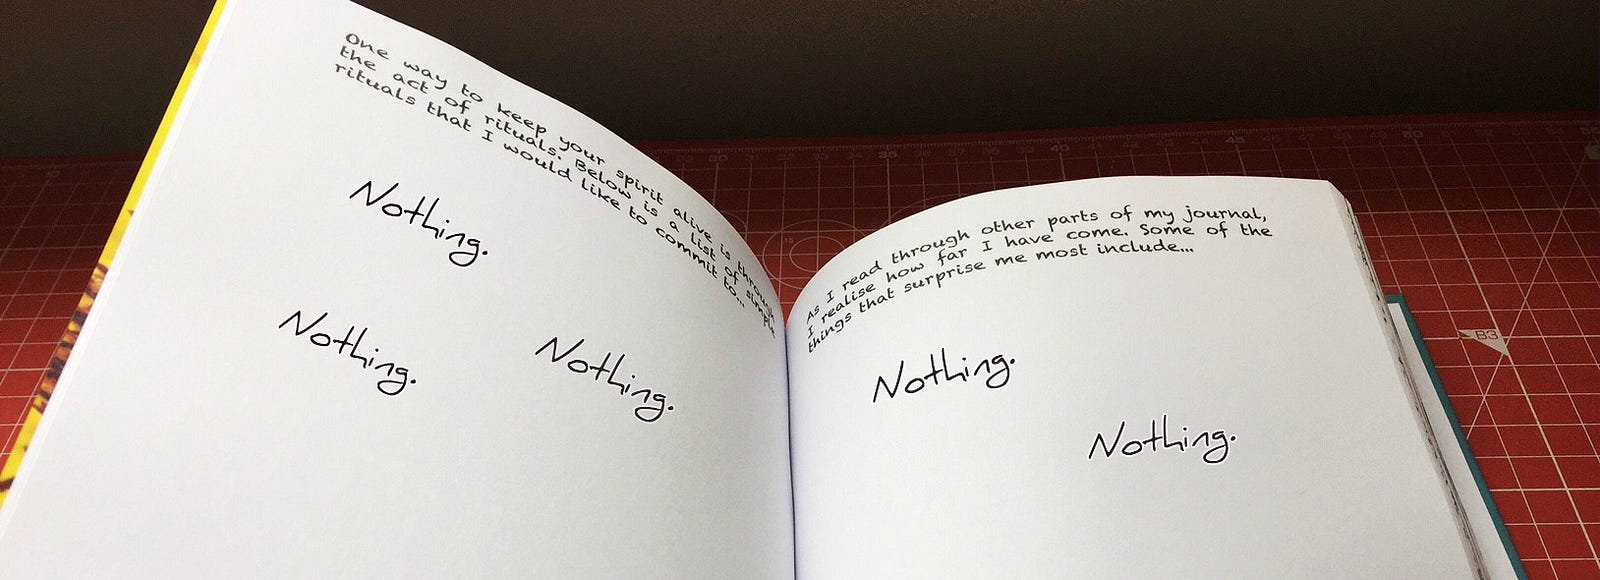 One way to keep your spirit alive is through
the act of rituals. Below is a list of simple
rituals that I would like to commit to...
Nothing.
Nothing.
Nothing.
As I read through other parts of my journal,
I realise how far I have come. Some of the
things that surprise me most include...
Nothing.
Nothing.
30
35
40
45
50
B3